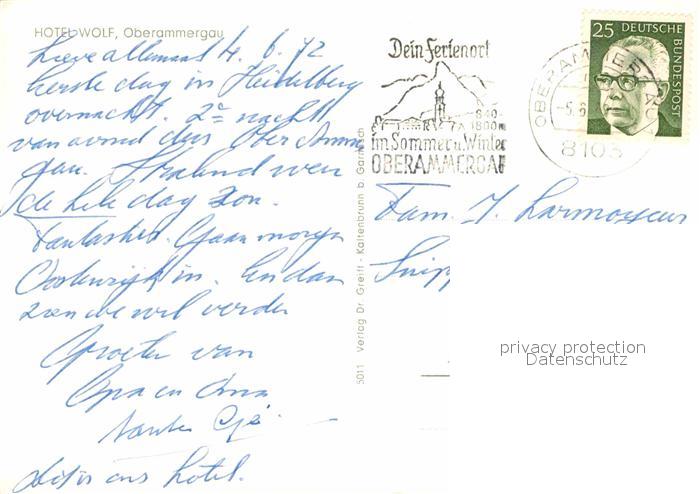 HOTEL WOLF, Oberammergau
Lieve allemaal 4.6.72
Eerste dag in Heidelberg
overnacht. 2e nacht
van avond dus Oberammer
gau. Stralend weer
de hele dag zon.
Fantastisch. Gaan morgen
Oostenrijk in. En dan
zien we wel verder
Groeten van
Opa en Oma
Tante
dit is ons hotel.
5011 Verlag Dr Greiff - Kaltenbrunn b Garmisch
Dein Ferienort
840-
1800m
im Sommer u. Winter
OBERAMMERGAU
OBERAMMERGAU
-5.6
8103
25 DEUTSCHE
BUNDESPOST
Fam. J.
privacy protection
Datenschutz